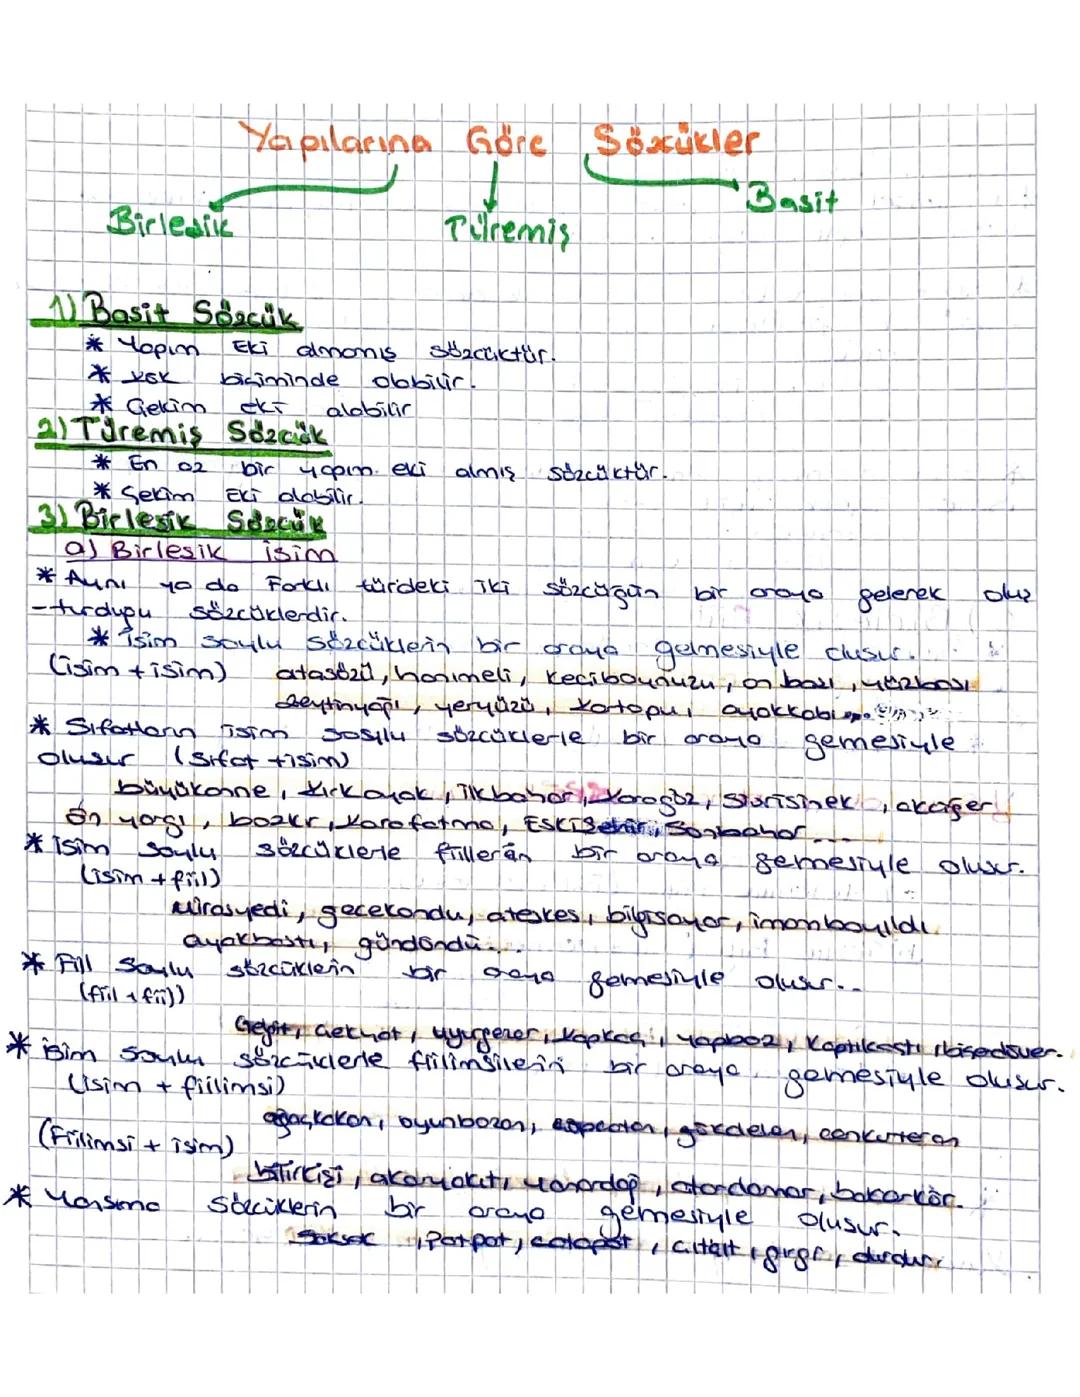 Yapılarına Göre Sözcükler
Birleşik Türemiş Basit
1) Basit Sözcük
* Yapım Eki almamış sözcüktür.
* Kök biçiminde olabilir.
* Çekim eki alabilir
2) Türemiş Sözcük
* En az bir yapım eki almış sözcüktür.
* Çekim Eki alabilir.
3) Birleşik Sözcük
a) Birleşik isim
* Aynı ya da Farklı türdeki iki sözcüğün bir araya gelerek oluş
-turduğu sözcüklerdir.
* İsim soylu sözcüklerin bir araya gelmesiyle oluşur.
(isim + isim) atasözü, hanımeli, keçiboynuzu, on başı, yüzbaşı
zeytinyağı, yeryüzü, kartopu, ayakkabı...
* Sıfatların isim soylu sözcüklerle bir araya gemesiyle
oluşur (sıfat + isim)
büyükanne, kırkayak, ilkbahar, karagöz, sivrisinek, akciğer
ön yargı, bozkır, karafatma, Eskişehir, Sonbahar...
* isim soylu sözcüklerle fiillerin bir araya gemesiyle oluşur.
(isim + fiil)
Mirasyedi, gecekondu, ateşkes, bilgisayar, imambayıldı
ayakbastı, gündöndü...
* Fiil soylu sözcüklerin bir araya gemesiyle oluşur..
(fiil + fiil)
Gelgit, çekyat, uyurgezer, kapkaç, yapboz, kaptıkaçtı, biçerdöver.
* isim soylu sözcüklerle fiilimsilerin bir araya gemesiyle oluşur.
(isim + fiilimsi)
ağaçkakan, oyunbozan, gökdelen, cankurtaran
(Fiilimsi + isim)
bilirkişi, akaryakıt, yanardağ, atardamar, bakarkör.
* Yansıma sözcüklerin bir araya gemesiyle oluşur.
Şakşak, patpat, çatapat, çıtçıt, gırgır, dırdır.